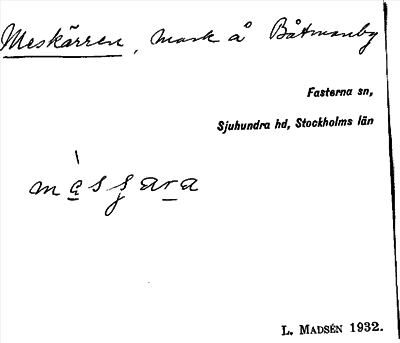 Meskärren, mark å Båtmanby
Fasterna sn,
Sjuhundra hd, Stockholms län
L. MADSÉN 1932.